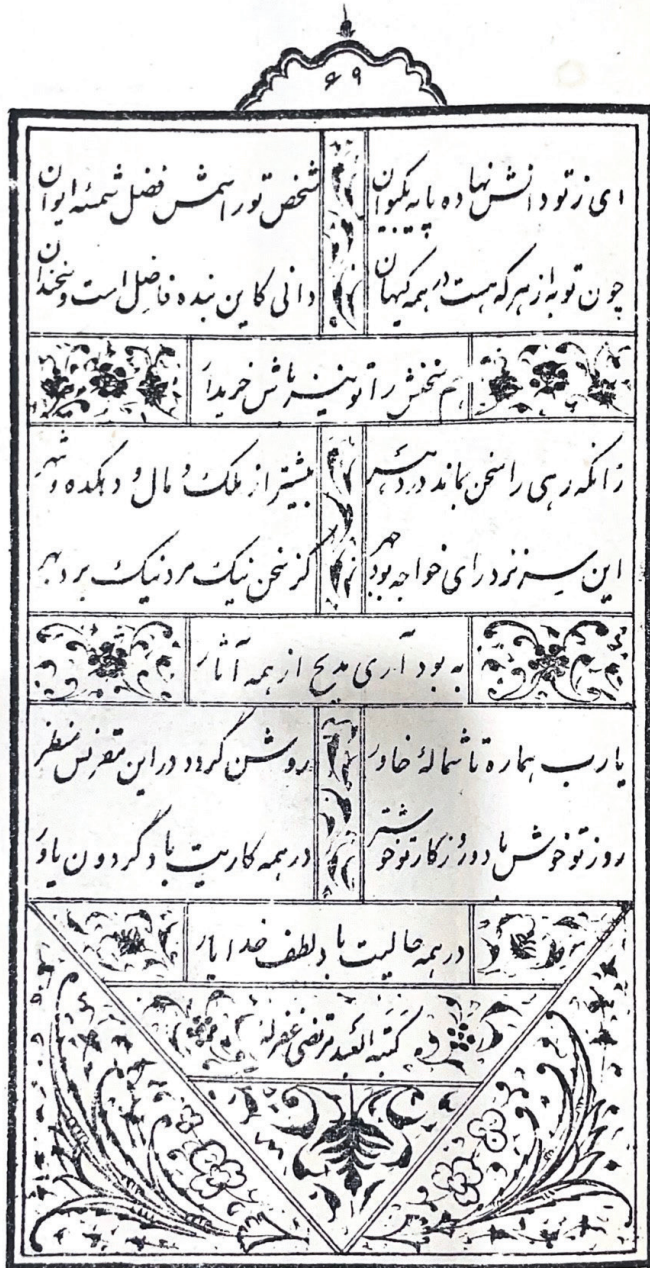 ۶۹
ای ز تو دانش نهاده پایه بکیوان شخص تو را شمش فضل شمسهٔ ایوان
چون تو به از هر که هست در همه کیهان دانی کاین بنده فاضل است و سخندان
هم سخنش را تو نیز باش خریدار
زانکه رهی را سخن بماند در دهر بیشتر از ملک و مال و دهکده و شهر
این سره نزد رای خواجه بود جهر کز سخن نیک مرد نیک برد بهر
به بود آری مدیح از همه آثار
یارب هماره تا شمالهٔ خاور روشن گردد در این مقرنس منظر
روز تو خوش باد و روزگار تو خوشتر در همه کاریت باد گردون یاور
در همه حالیت باد لطف خدا یار
کتبه العبد مرتضی غفر له